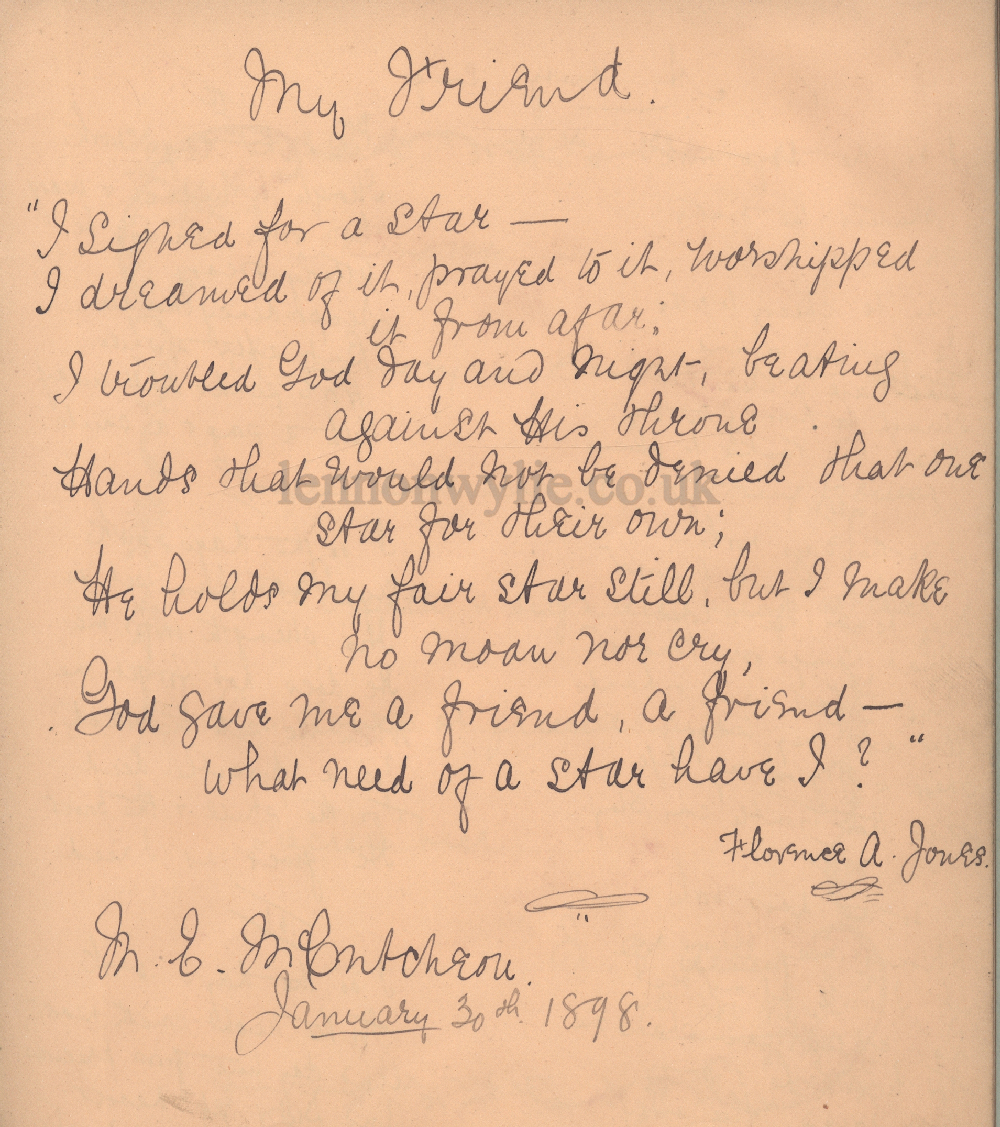 My Friend.
"I sighed for a star —
I dreamed of it, prayed to it, worshipped
it from afar;
I troubled God day and night, beating
against His throne
Hands that would not be denied that one
star for their own;
lennonwylie.co.uk
He holds my fair star still, but I make
no moan nor cry,
God gave me a friend, a friend —
what need of a star have I?"
Florence A. Jones.
M. E. McCutcheon.
January 30th. 1898.